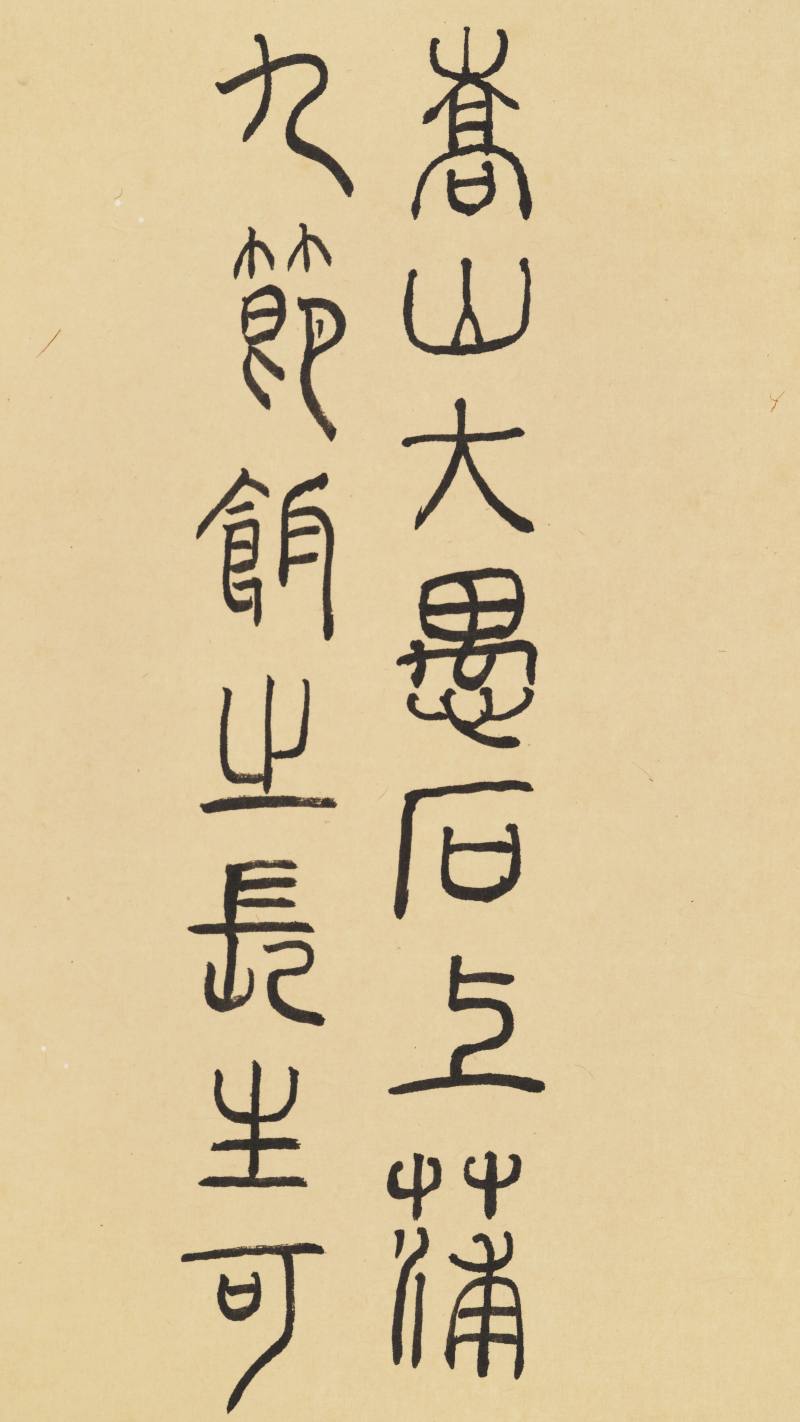 嵩山大愚石上蒲
九節餌之長生可